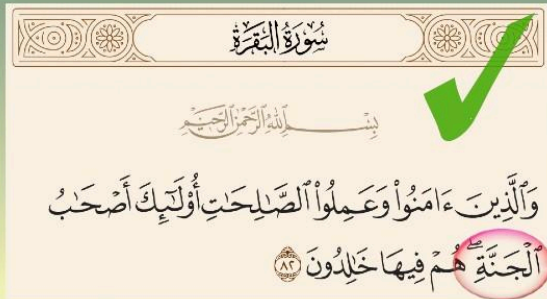 سُورَةُ الْبَقَرَةِ
بِسْمِ ٱللَّهِ ٱلرَّحْمَٰنِ ٱلرَّحِيمِ
وَٱلَّذِينَ ءَامَنُوا۟ وَعَمِلُوا۟ ٱلصَّٰلِحَٰتِ أُو۟لَٰٓئِكَ أَصْحَٰبُ
ٱلْجَنَّةِ ۖ هُمْ فِيهَا خَٰلِدُونَ ٨٢